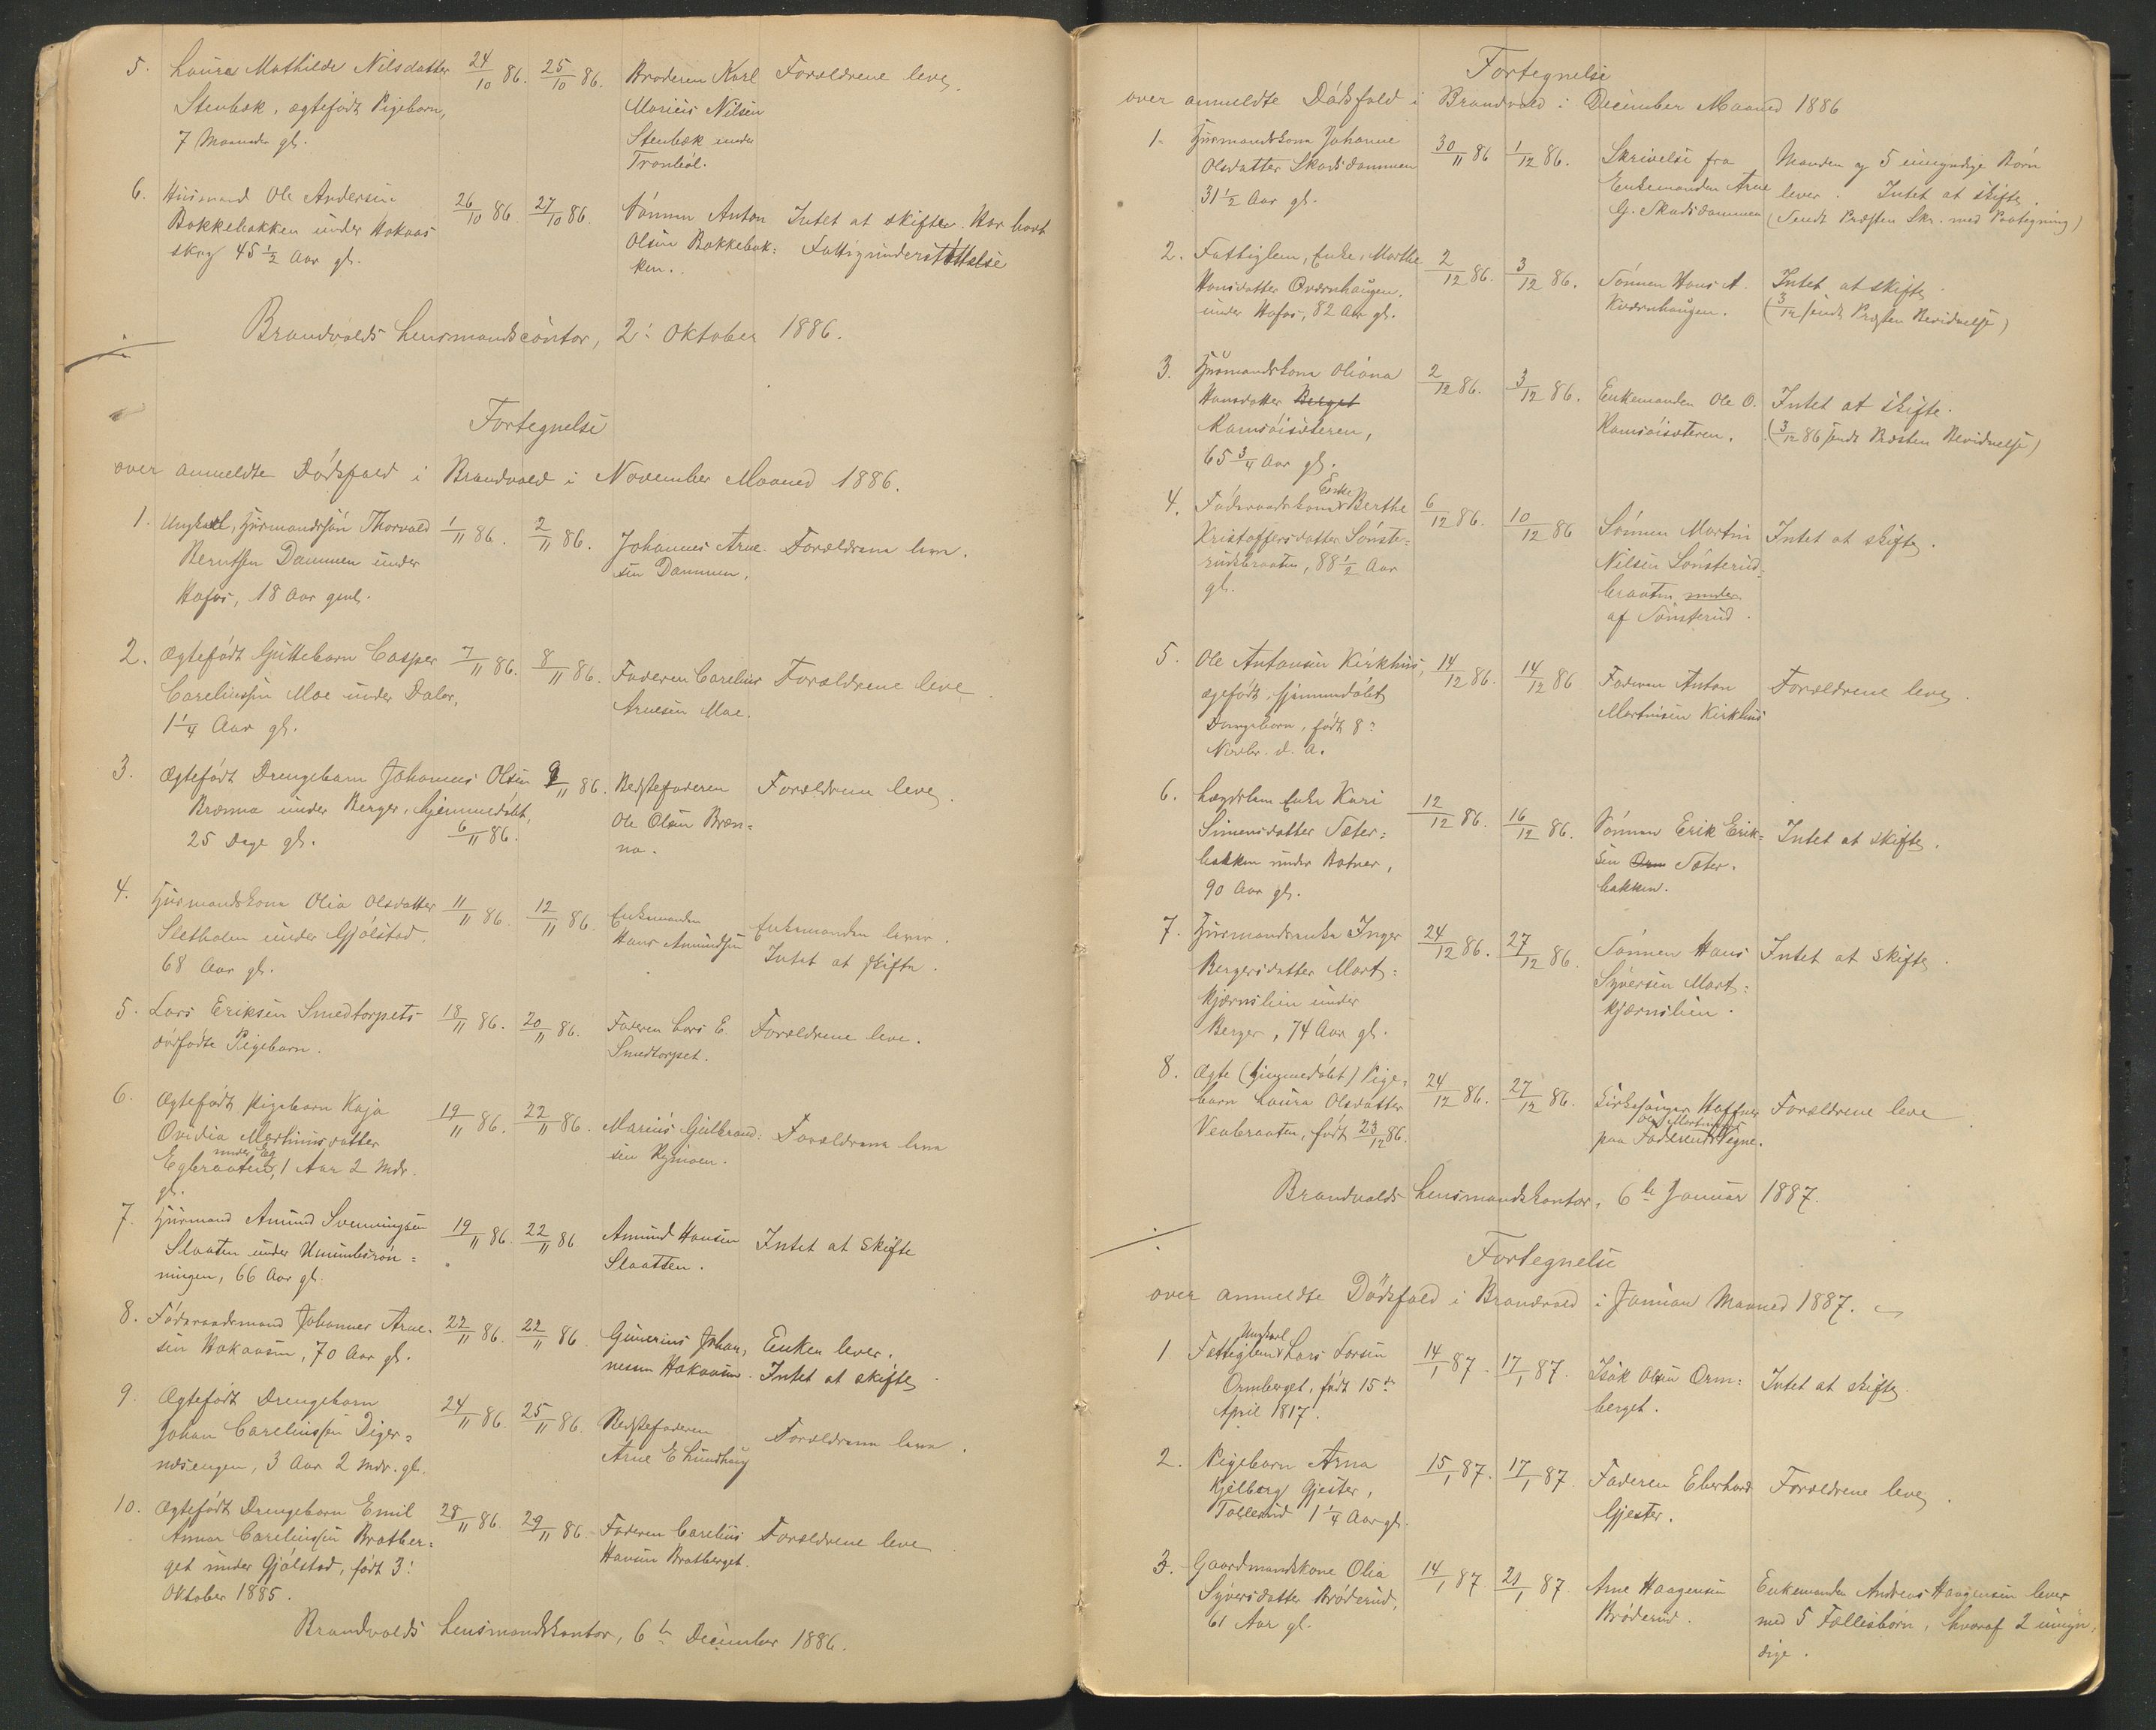 5. Laura Mathilde Nilsdatter 24/10 86. 25/10 86. Broderen Karl Forældrene leve.
Stenbæk, ægtefødt Pigebarn, Marius Nilsen
7 Maaneder gl. Stenbæk under
Tronbøl.
6. Husmand Ole Andersen 26/10 86. 27/10 86. Sønnen Anton Intet at skifte. Har havt
Bakkebakken under Hokaas Olsen Bakkebak= Fattigunderstøttelse
skog 45 1/2 Aar gl. ken.
Brandvolds Lensmandscontor, 2: Oktober 1886.
Fortegnelse
over anmeldte Dødsfald i Brandvold i November Maaned 1886.
1. Ungkarl, Husmandssøn Thorvald 1/11 86. 2/11 86. Johannes Arne- Forældrene leve.
Berntsen Dammen under sen Dammen.
Hofos, 18 Aar gml.
2. Ægtefødt Guttebarn Casper 7/11 86. 8/11 86. Faderen Carelius Forældrene leve
Careliussen Moe under Daler, Arnesen Moe.
1 1/4 Aar gl.
3. Ægtefødt Drengebarn Johannes Olsen 9/11 86. Bedstefaderen Forældrene leve.
Brænna under Berger, hjemmedøbt, Ole Olsen Bræn=
25 Dage gl. 6/11 86. na.
4. Husmandskone Olia Olsdatter 11/11 86. 12/11 86. Enkemanden Enkemanden lever.
Sletholen under Gjølstad. Hans Amundsen Intet at skifte.
68 Aar gl.
5. Lars Eriksen Smedtorpets 18/11 86. 20/11 86. Faderen Lars E. Forældrene leve.
dødfødte Pigebarn. Smedtorpet.
6. Ægtefødt Pigebarn Kaja 19/11 86. 22/11 86. Marius Gulbrand= Forældrene leve
Ovidia Martinusdatter sen Rymoen.
under Eg
Egbraaten, 1 Aar 2 Mdr.
gl.
7. Husmand Amund Svenningsen 19/11 86. 22/11 86 Amund Hansen Intet at skifte
Slaatten under Slaatten.
ningen, 66 Aar gl.
8. Føderaadsmand Johannes Arne- 22/11 86. 22/11 86 Gunerius Johan, Enken lever.
sen Hokaasen, 70 Aar gl. nesen Hokaasen. Intet at skifte.
9. Ægtefødt Drengebarn 24/11 86. 25/11 86. Bedstefaderen Forældrene leve.
Johan Careliussen Diger= Arne E Lundhaug
næsengen, 3 Aar 2 Mdr. gl.
10. Ægtefødt Drengebarn Emil 28/11 86. 29/11 86. Faderen Carelius Forældrene leve
Annar Careliussen Bratber= Hansen Bratberget.
get under Gjølstad, født 3:
Oktober 1885.
Brandvolds Lensmandskontor, 6te December 1886.
Fortegnelse
over anmeldte Dødsfald i Brandvold i December Maaned 1886
1. Husmandskone Johanne 30/11 86 1/12 86. Skrivelse fra Manden og 5 umyndige Børn
Olsdatter Skadsdammen Enkemanden Arne lever. Intet at skifte.
31 1/2 Aar gl. G. Skadsdammen (Sendt Præsten Skr. med Paategning)
2. Fattiglem, Enke, Marthe 2/12 86. 3/12 86. Sønnen Hans A. Intet at skifte
Hansdatter Qværnhaugen, Kværnhaugen. (3/12 sendt Præsten Bevidnelse)
under Hofos, 82 Aar gl.
3. Husmandskone Oliana 2/12 86. 3/12 86. Enkemanden Ole O. Intet at skifte.
Hansdatter Berget Ramsøisæteren. (3/12 86 sendt Præsten Bevidnelse)
Ramsøisæteren,
65 3/4 Aar gl.
Enke
4. Føderaadskone Berthe 6/12 86. 10/12 86 Sønnen Martin Intet at skifte.
Kristoffersdatter Sønste= Nilsen Sønsterud=
rudsbraaten, 88 1/2 Aar braaten under
gl. af Sønsterud.
5. Ole Antonsen Kirkhus, 14/12 86. 14/12 86 Faderen Anton Forældrene leve.
ægtefødt, hjemmedøbt Martinsen Kirkhus
Drengebarn, født 8:
Novbr. d. A.
6. Lægdslem Enke Kari 12/12 86. 16/12 86. Sønnen Erik Erik= Intet at skifte.
Simensdatter Sæter= sen Orm Sæter-
bakken under Botner, bakken.
90 Aar gl.
7. Husmandsenke Inger 24/12 86. 27/12 86. Sønnen Hans Intet at skifte.
Bergersdatter Mort= Syversen Mort=
kjærnslien under kjærnslien.
Berger, 74 Aar gl.
8. Ægte (hjemmedøbt) Pige= 24/12 86. 27/12 86. Kirkesanger Haffner Forældrene leve
barn Laura Olsdatter Ole Martinsens
Venbraaten, født 23/12 86. paa Faderens Vegne.
Brandvolds Lensmandskontor, 6te Januar 1887.
Fortegnelse
over anmeldte Dødsfald i Brandvold i Januar Maaned 1887.
Ungkarl
1 Fattiglem Lars Larsen 14/1 87. 17/1 87. Isak Olsen Orm= Intet at skifte.
Ormberget, født 15de berget.
April 1817.
2. Pigebarn Arna 15/1 87. 17/1 87. Faderen Eberhard Forældrene leve.
Kjelberg Gjester, Gjester.
Tollerud 1 1/4 Aar gl.
3. Gaardmandskone Olia 14/1 87. 21/1 87. Arne Haagensen Enkemanden Andreas Haagensen lever
Syversdatter Brøderud, Brøderud. med 5 Fællesbørn, hvoraf 2 umyn=
61 Aar gl. dige.